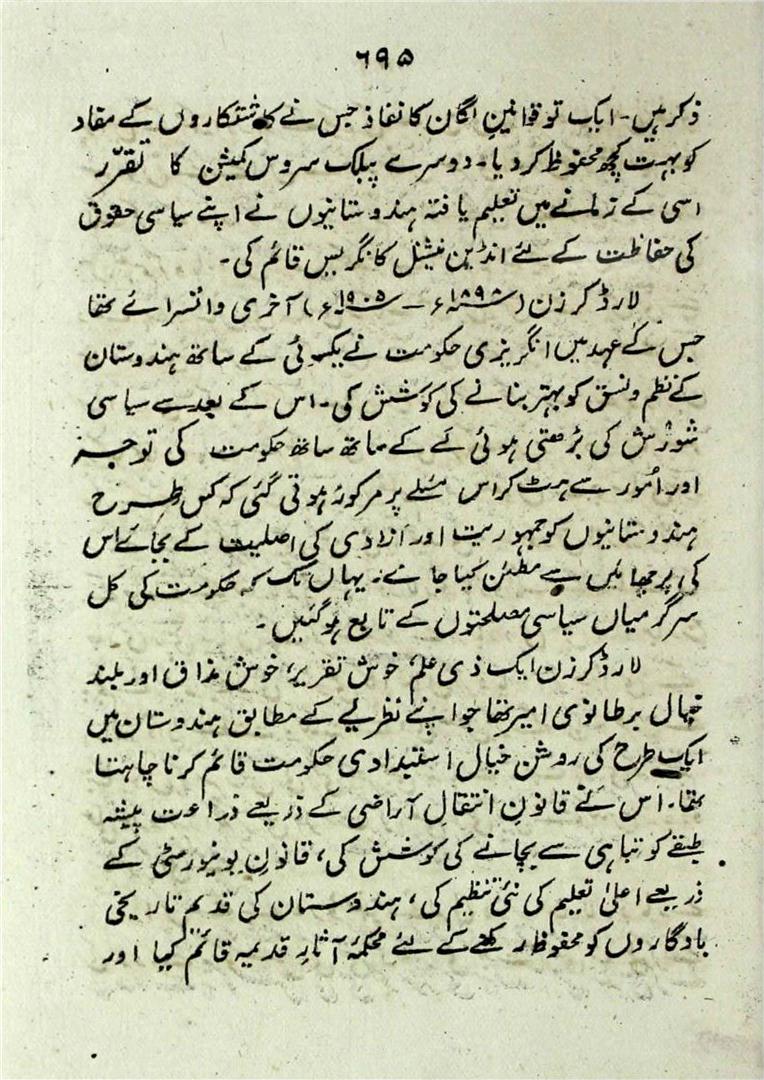 ۶۹۵
ذکر ہیں۔ ایک تو قوانینِ لگان کا نفاذ جس نے کاشتکاروں کے مفاد
کو بہت کچھ محفوظ کردیا۔ دوسرے پبلک سروس کمیشن کا تقرّر
اسی کے زمانے میں تعلیم یافتہ ہندوستانیوں نے اپنے سیاسی حقوق
کی حفاظت کے لئے انڈین نیشنل کانگریس قائم کی۔
لارڈ کرزن (۱۸۹۸ء – ۱۹۰۵ء) آخری وائسرائے تھا
جس کے عہد میں انگریزی حکومت نے یکسوئی کے ساتھ ہندوستان
کے نظم و نسق کو بہتر بنانے کی کوشش کی۔ اس کے بعد سے سیاسی
شورش کی بڑھتی ہوئی لے کے ساتھ ساتھ حکومت کی توجہ
اور اُمور سے ہٹ کر اس مسئلے پر مرکوز ہوتی گئی کہ کس طرح
ہندوستانیوں کو جمہوریت اور آزادی کی اصلیت کے بجائے اس
کی پرچھائیں سے مطمئن کیا جائے۔ یہاں تک کہ حکومت کی کل
سرگرمیاں سیاسی مصلحتوں کے تابع ہوگئیں۔
لارڈ کرزن ایک ذی علم، خوش تقریر، خوش مذاق اور بلند
خیال برطانوی امیر تھا جو اپنے نظریے کے مطابق ہندوستان میں
ایک طرح کی روشن خیال استبدادی حکومت قائم کرنا چاہتا
تھا۔ اس نے قانونِ انتقالِ آراضی کے ذریعے زراعت پیشہ
طبقے کو تباہی سے بچانے کی کوشش کی، قانونِ یونیورسٹی کے
ذریعے اعلیٰ تعلیم کی نئی تنظیم کی، ہندوستان کی قدیم تاریخی
یادگاروں کو محفوظ رکھنے کے لئے محکمۂ آثارِ قدیمہ قائم کیا اور